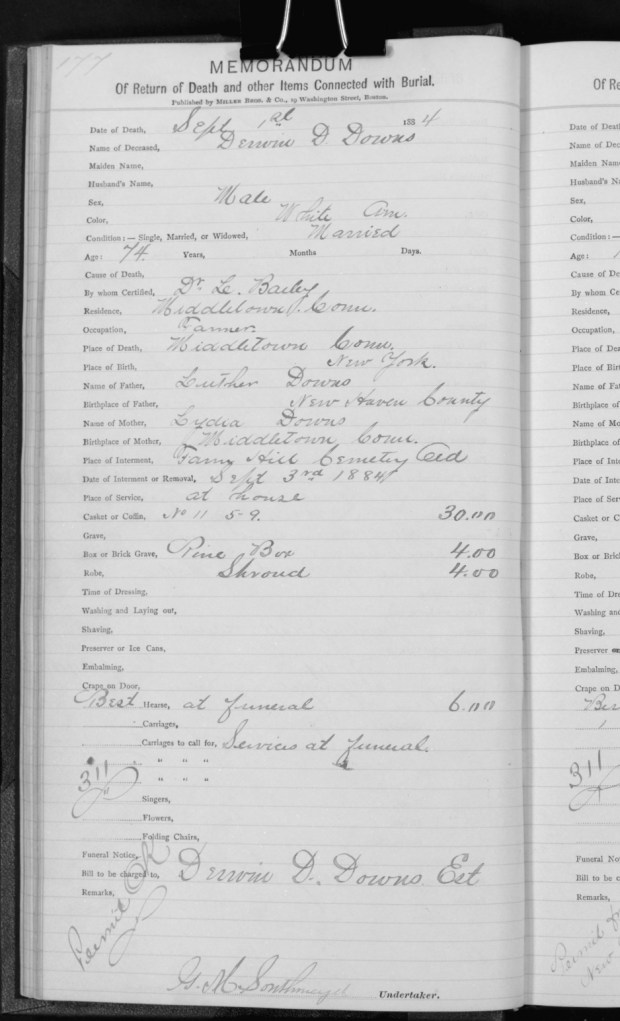 177
MEMORANDUM
Of Return of Death and other Items Connected with Burial.
Published by MILLER BROS. & CO., 19 Washington Street, Boston.
Date of Death, Sept 1st 1884
Name of Deceased, Derwin D. Downs
Maiden Name,
Husband's Name,
Sex, Male
Color, White Am.
Condition:— Single, Married, or Widowed, Married
Age: 74 Years, Months Days.
Cause of Death,
By whom Certified, Dr. L. Bailey
Residence, Middletown Conn.
Occupation, Farmer.
Place of Death, Middletown Conn.
Place of Birth, New York.
Name of Father, Luther Downs
Birthplace of Father, New Haven County
Name of Mother, Lydia Downs
Birthplace of Mother, Middletown Conn.
Place of Interment, Farm Hill Cemetery
Date of Interment or Removal, Sept 3rd 1884
Place of Service, at house
Casket or Coffin, No 11 5-9. 30.00
Grave,
Box or Brick Grave, Pine Box 4.00
Robe, Shroud 4.00
Time of Dressing,
Washing and Laying out,
Shaving,
Preserver or Ice Cans,
Embalming,
Crape on Door,
Best Hearse, at funeral 6.00
Carriages,
Carriages to call for, Services at funeral.
" " "
311
" " "
Singers,
Flowers,
Folding Chairs,
Funeral Notice,
Bill to be charged to, Derwin D. Downs Est
Remarks,
Permit OK
G. M. Southmayd Undertaker.
Of Re
Date of Deat
Name of Dec
Maiden Nam
Husband's N
Sex,
Color,
Condition:—
Age:
Cause of De
By whom Ce
Residence,
Occupation,
Place of Dea
Place of Birt
Name of Fat
Birthplace of
Name of Mo
Birthplace of
Place of Inte
Date of Inte
Place of Ser
Casket or C
Grave,
Box or Bric
Robe,
Time of Dre
Washing and
Shaving,
Preserver or
Embalming,
Crape on D
311
Funeral No
Bill to be c
Remarks,
Permit
New